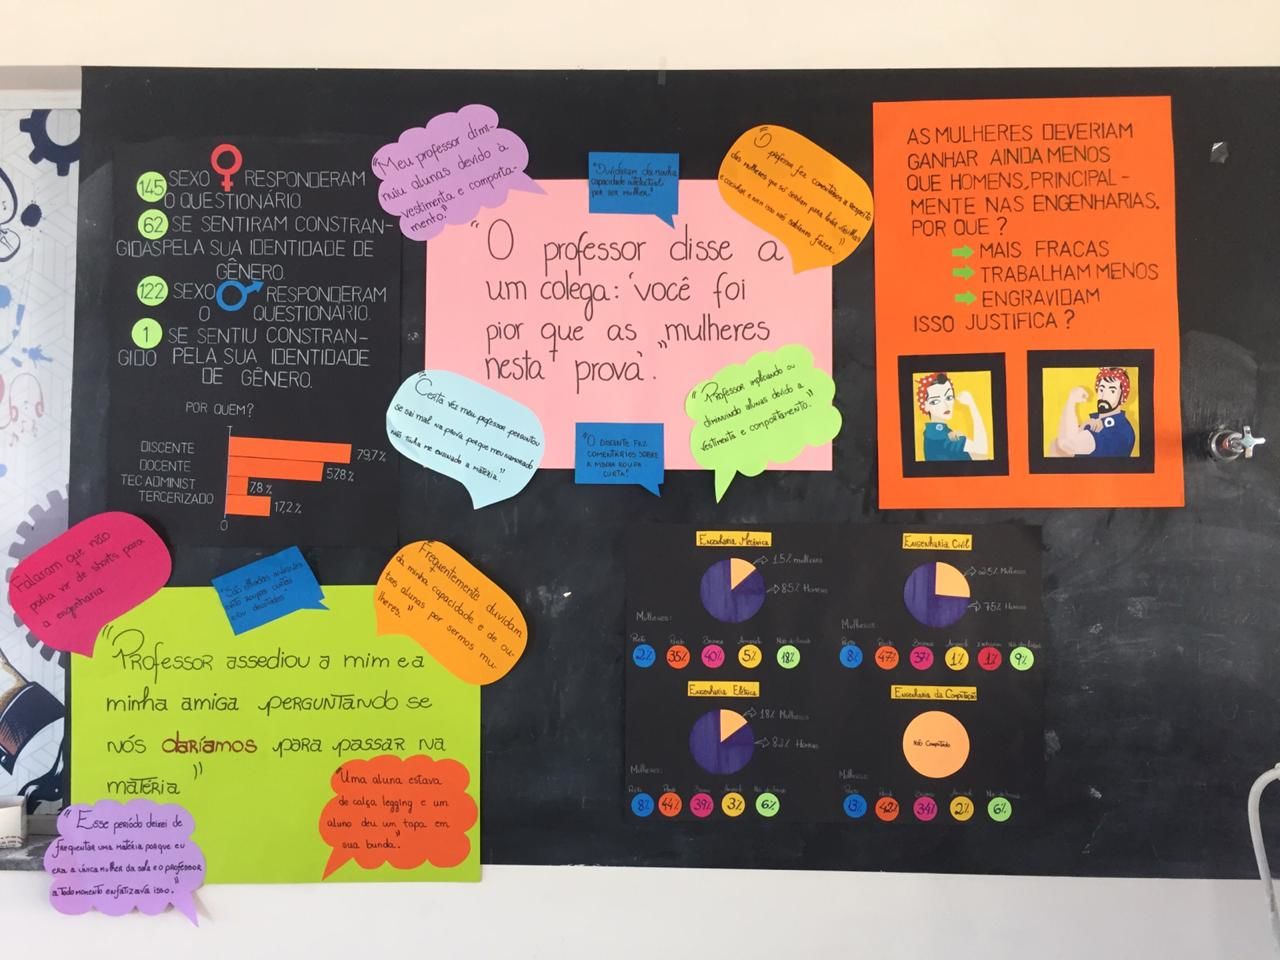 145 SEXO ♀ RESPONDERAM
O QUESTIONÁRIO.
62 SE SENTIRAM CONSTRAN-
GIDAS PELA SUA IDENTIDADE DE
GÊNERO.
122 SEXO ♂ RESPONDERAM
O QUESTIONÁRIO.
1 SE SENTIU CONSTRAN-
GIDO PELA SUA IDENTIDADE
DE GÊNERO.
POR QUEM?
DISCENTE 79,7%
DOCENTE 57,8%
TEC ADMINIST 7,8%
TERCERIZADO 17,2%
0
"Meu professor dimi-
nuiu alunas devido à
vestimenta e comporta-
mento."
"Duvidaram da minha
capacidade intelectual
por ser mulher"
O professor fez comentários a respeito
das mulheres que só serviam para lavar vasilhas
e cozinhar e nem isso nós sabíamos fazer."
"O professor disse a
um colega: 'você foi
pior que as mulheres
nesta prova'."
"Certa vez meu professor perguntou
se sai mal na prova porque meu namorado
não tinha me ensinado a matéria."
"O DISCENTE FAZ
COMENTÁRIOS SOBRE
A MINHA ROUPA
CURTA!"
"Professor implicando ou
diminuindo alunas devido a
vestimenta e comportamento."
AS MULHERES DEVERIAM
GANHAR AINDA MENOS
QUE HOMENS, PRINCIPAL-
MENTE NAS ENGENHARIAS.
POR QUE?
MAIS FRACAS
TRABALHAM MENOS
ENGRAVIDAM
ISSO JUSTIFICA?
Falaram que não
podia vir de shorts para
a engenharia
"São olhadas
roupas curtas
"Frequentemente duvidam
da minha capacidade e de ou-
tras alunas por sermos mu-
lheres."
"Professor assediou a mim e a
minha amiga perguntando se
nós daríamos para passar na
matéria"
"Uma aluna estava
de calça legging e um
aluno deu um tapa em
sua bunda."
"Esse período deixei de
frequentar uma matéria porque eu
era a única mulher da sala e o professor
a todo momento enfatizava isso."
Engenharia Mecânica
15% mulheres
85% Homens
Mulheres:
Preta Parda Branca Amarela
2% 35% 40% 5% 18%
Engenharia Civil
25% Mulheres
75% Homens
Mulheres:
Preta Parda Branca Amarela Indígena
8% 47% 37% 1% 1% 9%
Engenharia Elétrica
18% Mulheres
82% Homens
Mulheres:
Preta Parda Branca Amarela
8% 44% 39% 3% 6%
Engenharia da Computação
Não Computado
Mulheres:
Preta Parda Branca Amarela
13% 42% 34% 2% 6%